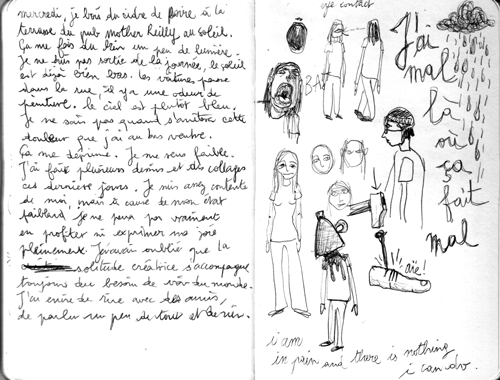 mercredi, je bois du cidre de poire à la
terrasse du pub mother Reilly, au soleil.
Ça me fais du bien un peu de lumière.
Je ne suis pas sortie de la journée, le soleil
est déjà bien bas. les voitures passe
dans la rue, il y a une odeur de
peinture. le ciel est plutôt bleu.
Je ne sais pas quand s'arrêtera cette
douleur que j'ai au bas ventre.
Ça me déprime. Je me sens faible.
J'ai fait plusieurs dessins et des collages
ces derniers jours. Je suis assez contente
de moi, mais à cause de mon état
faiblard je ne peux pas vraiment
en profiter ni exprimer ma joie
pleinement. J'avais oublié que la
solitude créatrice s'accompagne
toujours du besoin de voir du monde.
J'ai envie de rire avec des amis,
de parler un peu de tout et de rien.
eye contact
J'ai
mal
là
où
ça
fait
mal
aïe!
i am
in pain and there is nothing
i can do.